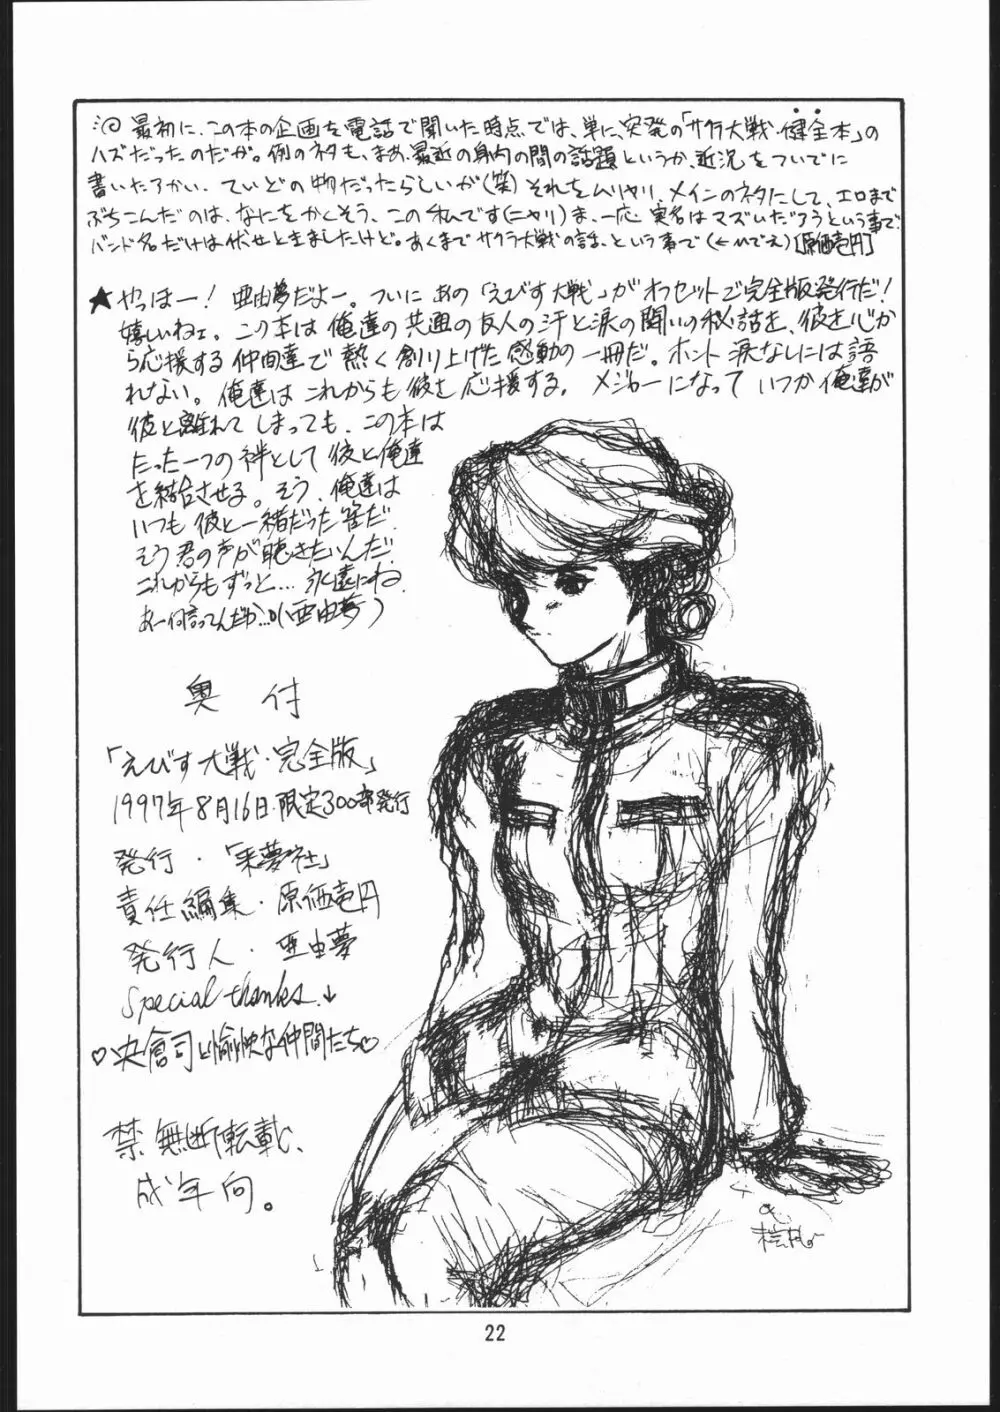 最初に、この本の企画を電話で聞いた時点では、単に、突発の「サクラ大戦・健全本」の
ハズだったのだが。例のネタも、まあ、最近の身内の間の話題というか、近況をついでに
書いたろかい、ていどの物だったらしいが(笑)それをムリヤリ、メインのネタにして、エロまで
ぶちこんだのは、なにをかくそう、この私です(ニヤリ)ま、一応実名はマズいだろうという事で、
バンド名だけは伏せときましたけど。あくまでサクラ大戦の話、という事で(←ひでえ)[原価壱円]
★やっほー！亜由夢だよー。ついにあの「えびす大戦」がオフセットで完全版発行だ！
嬉しいねェ。この本は俺達の共通の友人の汗と涙の闘いの秘話を、彼を心か
ら応援する仲間達で熱く創り上げた感動の一冊だ。ホント涙なしには語
れない。俺達はこれからも彼を応援する。メジャーになっていつか俺達が
彼と離れてしまっても、この本は
たった一つの絆として彼と俺達
を結合させる。そう、俺達は
いつも彼と一緒だった筈だ。
そう君の声が聴きたいんだ。
これからもずっと…永遠にね。
あー何言ってんだか…。(亜由夢)
奥付
「えびす大戦・完全版」
1997年8月16日・限定300部発行
発行・「来夢社」
責任編集・原価壱円
発行人・亜由夢
Special thanks↓
♡央倉司と愉快な仲間たち♡
禁無断転載、
成年向。
22